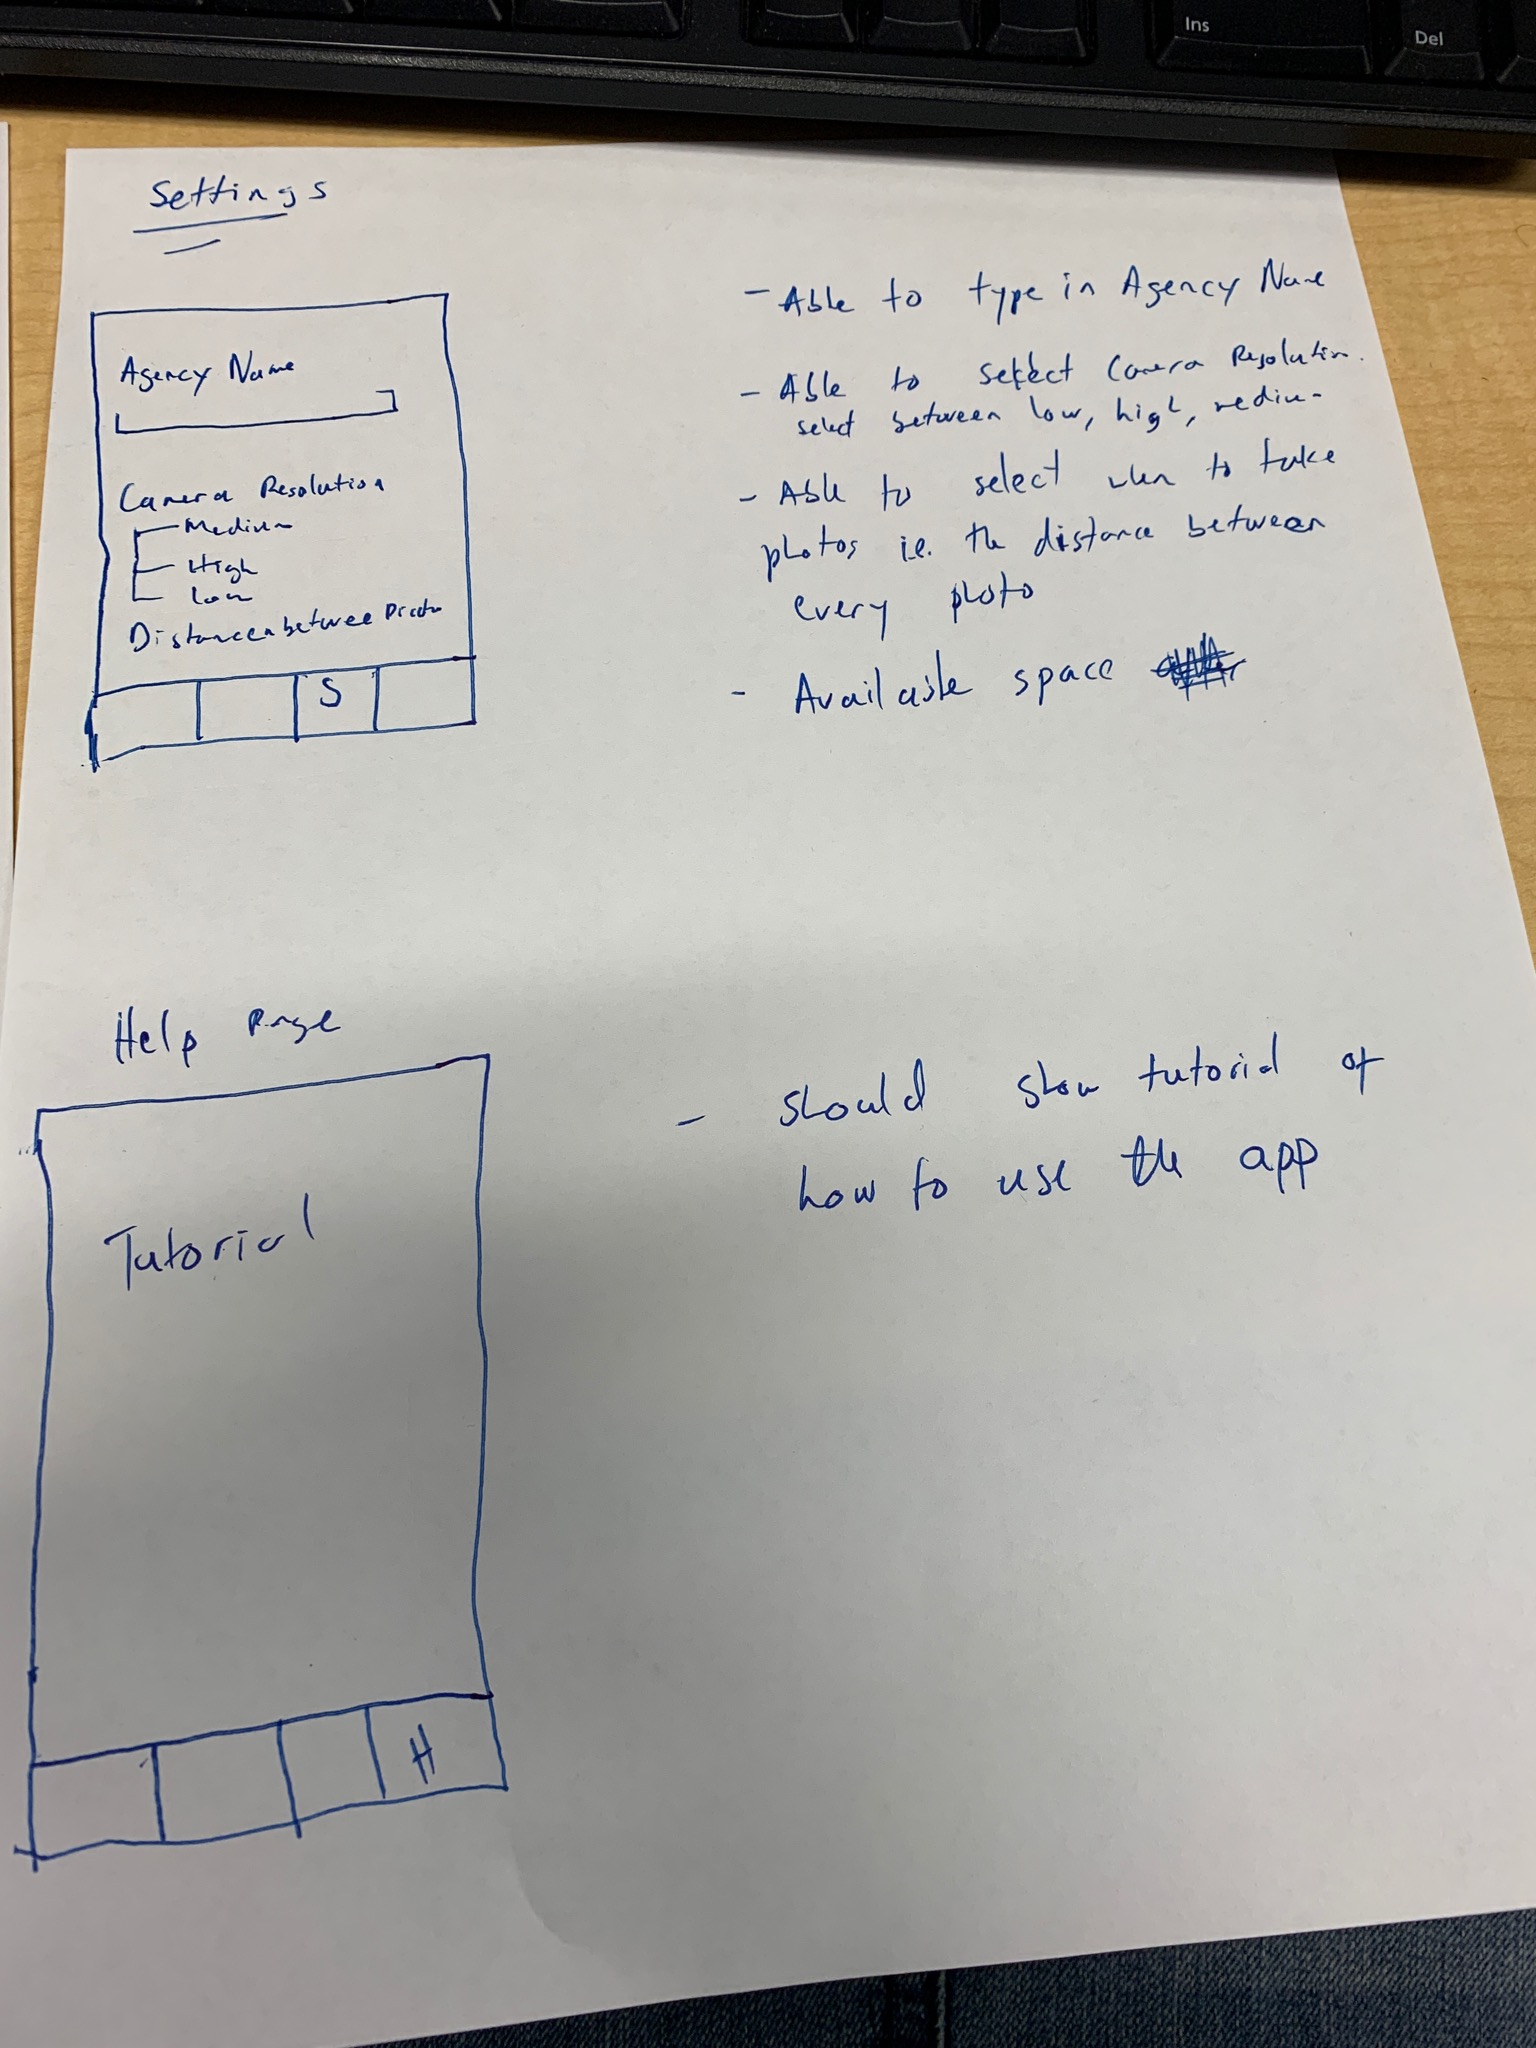 Ins
Del
Settings
Agency Name
Camera Resolution
Medium
High
Low
Distance between
S
- Able to type in Agency Name
- Able to select Camera Resolution.
select between low, high, medium
- Able to select when to take
photos i.e. the distance between
every photo
- Available space
Help Page
Tutorial
H
- Should show tutorial of
how to use the app